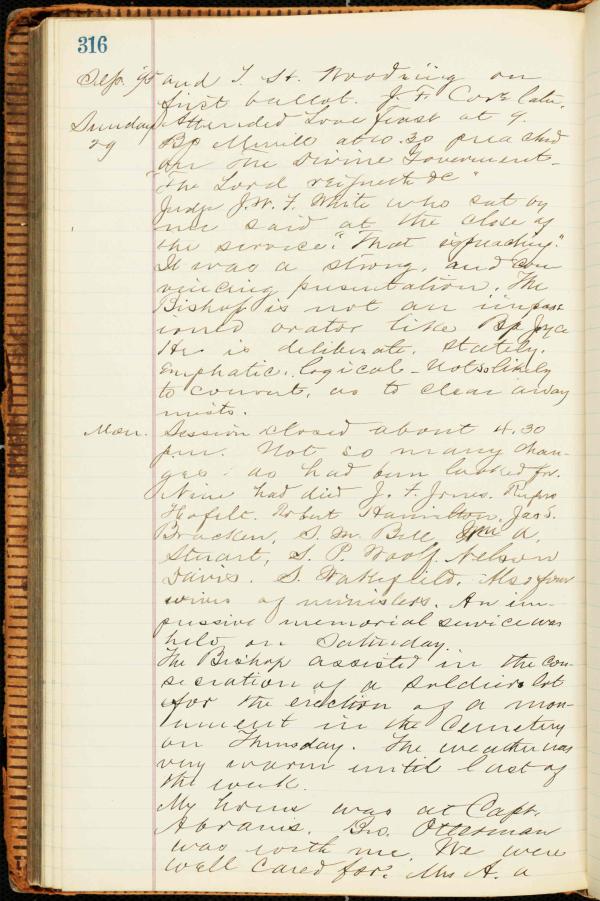 316
Sep. '95 and T. St. Woodring on
first ballot. J. F. Cox later.
Sunday Attended Love Feast at 9.
29 Bp Merrill at 10.30 preached
on the Divine Government
"The Lord reigneth &c"
Judge J. W. F. White who sat by
me said at the close of
the service: "That is preaching."
It was a strong, and con
vincing presentation. The
Bishop is not an impass
ioned orator like Bp Joyce
He is deliberate, stately,
emphatic, logical - Not so likely
to convert, as to clear away
mists.
Mon. Session closed about 4.30
p.m. Not so many chan-
ges as had been looked for.
Nine had died J. F. Jones. Rufus
Hofelt. Robert Hamilton, Jas S.
Bracken, S. M. Bell, A.
Stuart, S. P. Woolf, Nelson
Davis. S. Wakefield. Also four
wives of ministers. An im-
pressive memorial service was
held on Saturday.
The Bishop assisted in the con-
secration of a soldiers lot
for the erection of a mon-
ument in the Cemetery
on Thursday. The weather was
very warm until last of
the week.
My home was at Capt.
Abrams. Bro. Otterman
was with me. We were
well cared for. Mrs A. a